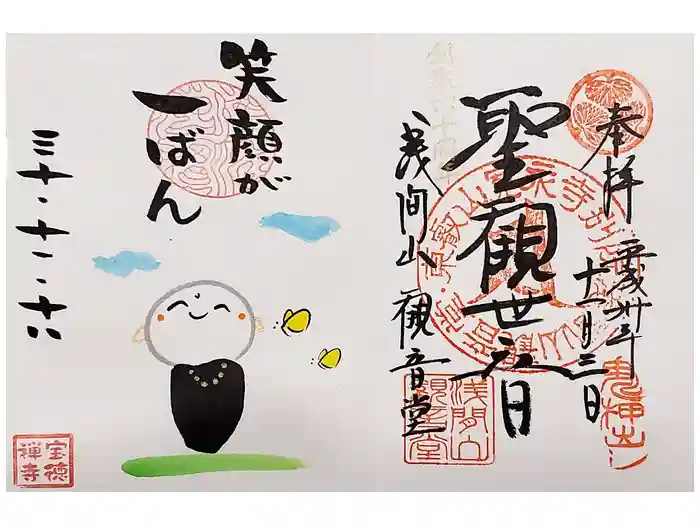 奉拝
平成卅年
十一月三日
聖観世音
浅間山 観音堂
浅間山
観音堂
笑顔が
一ばん
三十・十一・十八
宝徳
禅寺